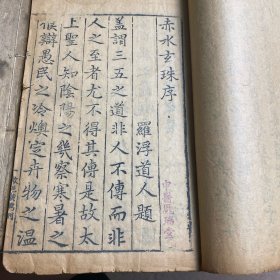 赤水玄珠序
羅浮道人題
蓋謂三五之道非人不傳而非
人之至者尤不得其傳是故太
上聖人知陰陽之幾察寒暑之
候辯愚民之冷燠定卉物之溫